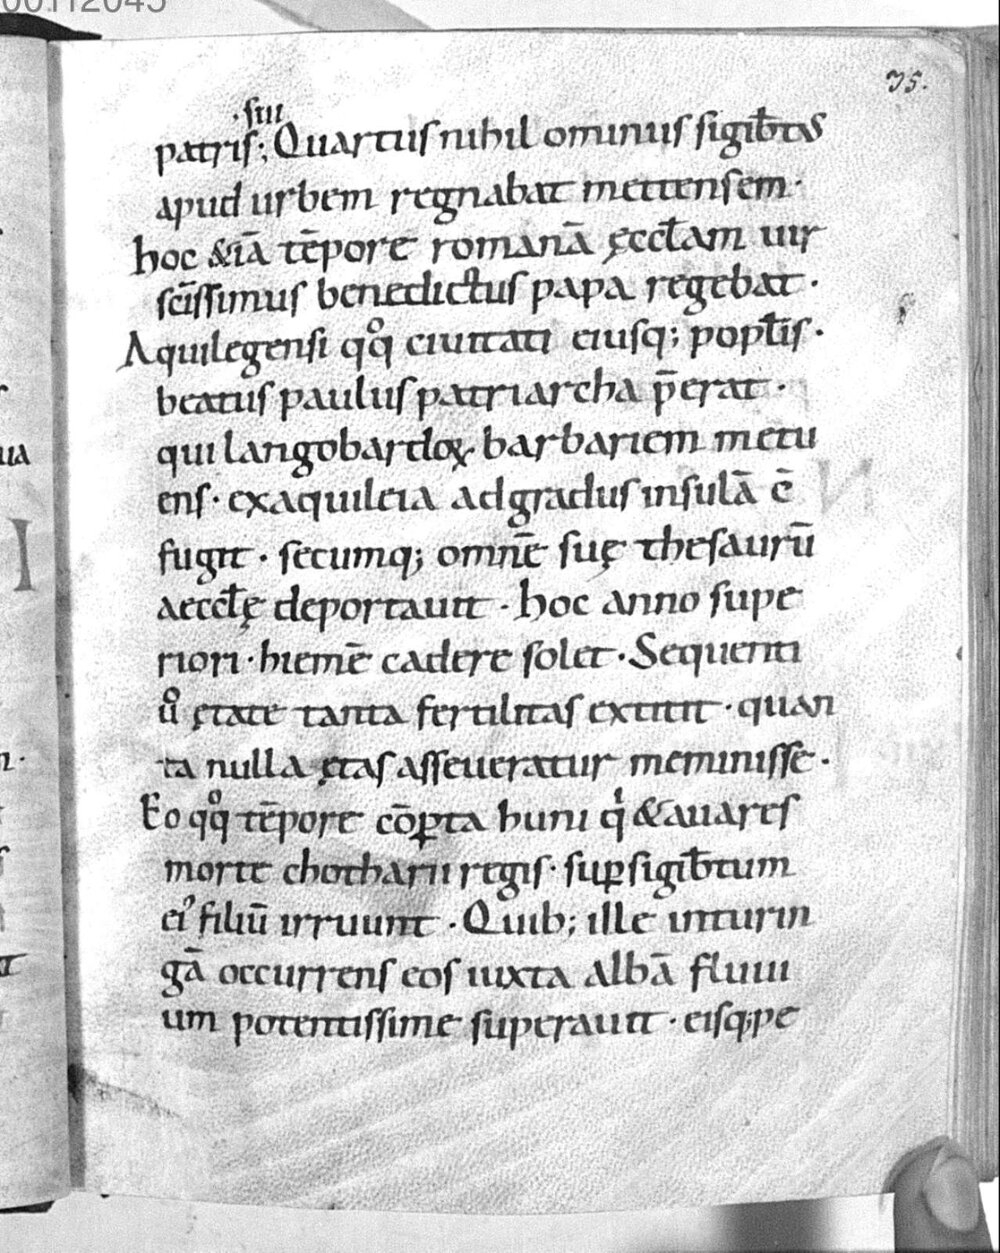 00112045
75.
·sui
patris; Quartus nihil ominus sigib̄tus
apud urbem regnabat mettensem·
hoc &iā tēpore romanā ęcct̄am uir
sc̄issimus benedictus papa regebat·
Aquilegensi qq̊ ciuitati eiusq; popt̄is·
beatus paulus patriarcha p̄erat·
qui langobardoꝝ barbariem metu
ens· ex aquileia ad gradus insulā c̄
fugit· secumq; omnē suę thesaurū
aecct̄ę deportauit· hoc anno supe
riori· hiemē cadere solet· Sequenti
ů ętate tanta fertilitas extitit· quan
ta nulla ętas asseueratur meminisse·
Eo qq̊ tēpore cōꝑta huni qⁱ & auares
morte chotharii regis· suꝑ sigib̄tum
eiꝰ filiū irruunt· Quib; ille in turin
gā occurrens eos iuxta albā fluui
um potentissime superauit· eisq; pe